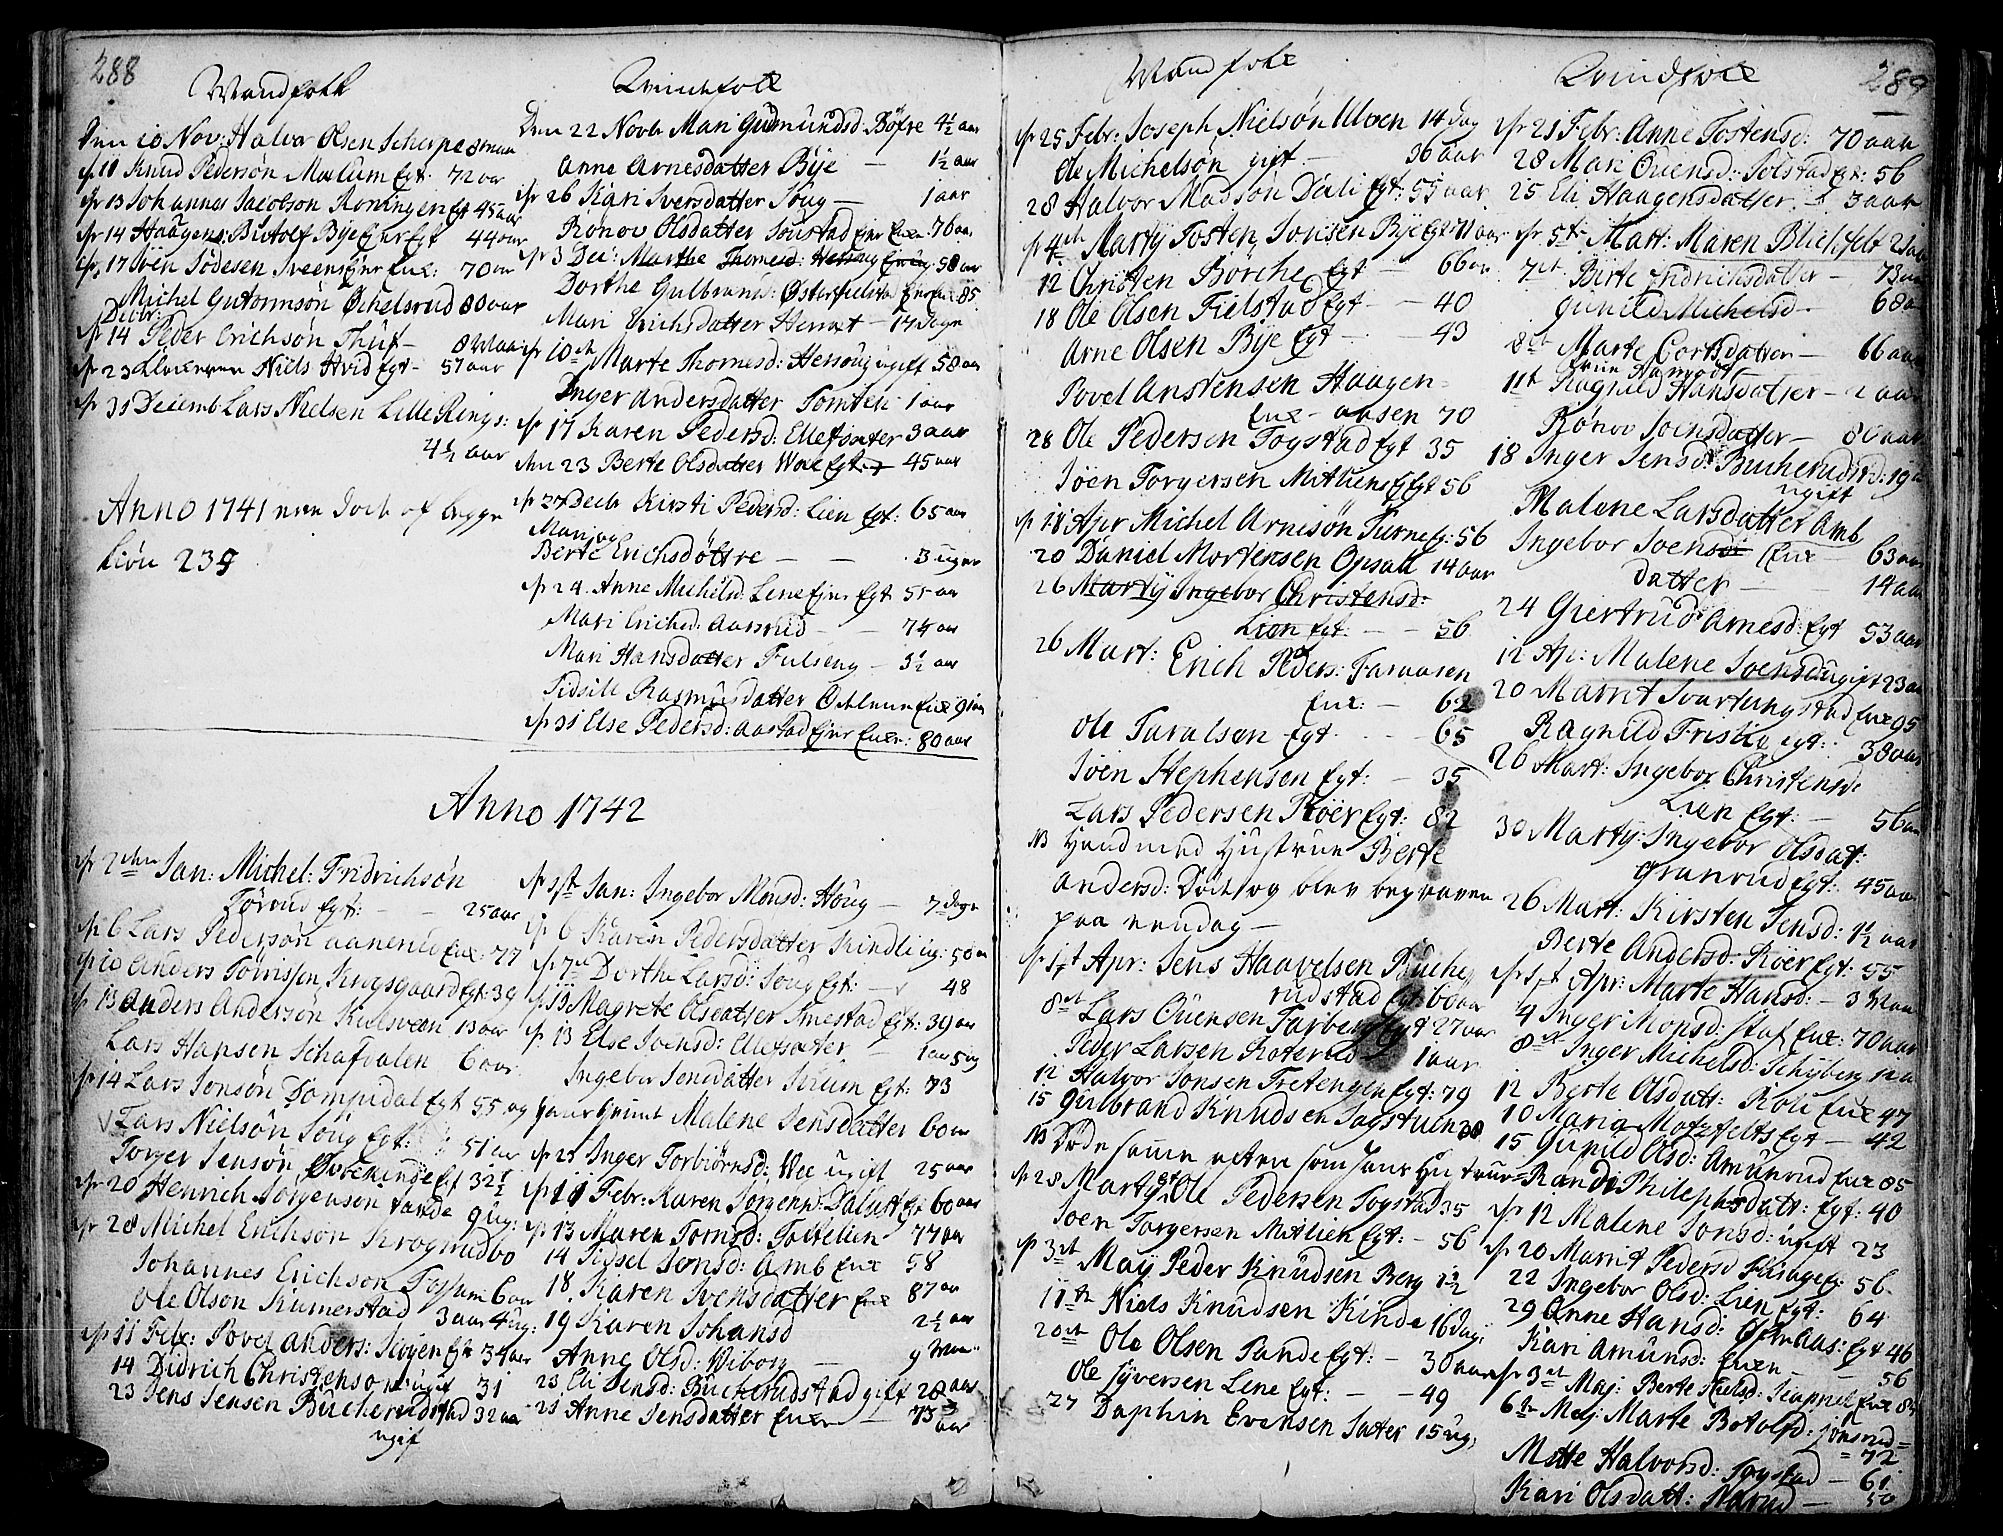 288
Mandfolk
Den 10 Nov: Halvor Olsen Scherpe 8 maan
11 Knud Pedersøn Mælum Egt. 72 aar
13 Johannes Jacobson Roningen Egt 45 aar
14 Haagens: Butolf Bye Ejer Egt 44 aar
17 Sven Sødesen Sveens Ejer Enk: 70 aar
Michel Gutormsøn Øchelsrud 80 aar
Decbr:
14 Peder Erichsøn Thuf 8 Maan
23 Niels Hvid Egt 57 aar
31 Decemb Lars Nielsen Lille Rings:
4½ aar
Anno 1741 ere Død af begge
Kiøn 239
Qvindefolk
Den 22 Novb Mari Gudmundsd: Böfre 4½ aar
Anne Arnesdatter Bÿe 1½ aar
26 Kari Iversdatter Soug 1 aar
Rønov Olsdatter Sonstad Ejer Enk 76 aar
3 Dec: Marthe Thomesd: Hersoug 58 aar
Dorthe Gulbrands: Østerfielsta 85
Mari Erichsdatter Hemst 14 Dage
10de Marte Thomesd: Hersoug ugift 58 aar
Inger Andersdatter Tomten 1 aar
17 Karen Pedersd: Ellefsæter 3 aar
den 23 Berte Olsdatter Wole Egt 45 aar
27 Decb Kirsti Pedersd: Lien Egt: 65 aar
Mari og
Berte Erichsdøttre 3 uger
24 Anne Michelsd: Lene Ejer Egt 55 aar
Mari Erichsd: Aasrud 74 aar
Mari Hansdatter Fulseng 3½ aar
Sidsele Rasmusdatter Enk 91 aar
31 Else Pedersd: Aastad Ejer Enke: 80 aar
Anno 1742
2den Jan: Michel: Fridrichsøn
Tørud Egt: 25 aar
6 Lars Pedersøn Aanerud Enk: 77
10 Anders Tønissen Kingsgaard Egt: 39
13 Anders Andersøn Kulsveen 13 aar
Lars Hansen Schafdalen 6 aar
14 Lars Jonsøn Dompidal Egt 55 og
Lars Nielsøn Soug Egt: 51 aar
Torger Jensøn Øvrekinde Egt 32½
20 Henrich Jørgensøn tande 9 ug:
28 Michel Erichsøn Krogrudbo
Johannes Erichson Fossum 6 aar
Ole Olson Kumerstad 3 aar 4 ug:
11 Febr: Povel Anders: Skøyen Egt 34 aar
14 Didrich Christenson ugift 31
23 Jens Jensen Bucherudstad 32 aar
ugif
1st Jan: Ingebor Monsd: Houg 7 dage
6 Karen Pedersdatter Kindlieg: 50 a
7de Dorthe Larsd: Soug Egt: 48
13 Magrete Olsdatter Smestad Egt: 39 aar
13 Else Joensd: Ellefsæter 1 aar 5 ug
Ingebor Jonsdatter Skium Egt: 73
Malene Jensdatter 60 aar
21 Inger Torbiørnsd: Wee ugift 25 aar
11 Febr: Karen Jørgensd: Dalset Egt 60 aar
13 Maren Tomsd: Toltelien 77 aar
14 Sidsel Jonsd: Amb Enk 58
18. Karen Svensdatter Enk 87 aar
19 Karen Johansd 2½ aar
Anne Olsd: Wiborg 9 Maa
23 Eli Jensd: Bucherudstad gift 28 aar
25 Anne Jensdatter Enke 73 aar
Mandfolk
25 Febr: Joseph Nielsøn Ulven 14 dag
Ole Michelsøn gift 36 aar
28 Halvor Madsøn Dæli Egt: 55 aar
4de Martÿ Tosten Jonsen Bye Egt 71 aar
12 Christen Børche Egt 66 aar
18 Ole Olsen Fielstad Egt 40
Arne Olsen Bÿe Egt 43
Povel Anstensen Haagen=
Enk aasen 70
28 Ole Pedersen Togstad Egt 35
Joen Torgersen Mitlieng Egt 56
18 Apr Michel Arnisøn Furne Eg: 56
20 Daniel Mortensen Opsall 14 aar
26 Martÿ Ingebor Christensd:
Lien Egt: 56
26 Mart: Erich Peders: Faraasen
Enk: 62
Ole Taralsen Egt 65
Joen Stephensen Egt: 35
Lars Pedersen Røer Egt: 82
NB Hand med Hustrue Berte
Andersd: Døde og blev begraven
paa een dag
1st Apr: Jens Haavelsen Buche
rudstad Egt: 60 aar
8de Lars Ouensen Farberg Egt 27 aar
Peder Larsen Roterud 1 aar
12 Halvor Jonsen Tretengen Egt: 79
15 Gulbrand Knudsen Sagstuen 38
NB Døde samme aften som hans Hustrue=
28 Martÿ Ole Pedersen Togstad 35
Joen Torgersen Mitlien Egt: 56
3de Maÿ Peder Knudsen Berg 1½
11te Niels Knudsen Kinde 16 dag:
20de Ole Olsen Sande Egt: 30 aar
Ole Iÿversen Lene Egt: 49
27 Daphin Evensen Sæter 15 ug:
Qvindfolk
289
21 Febr: Anne Tostensd: 70 aar
28 Mari Ouensd: Solstad Egt: 56
25 Eli Haagensdatter 3 aar
5te Mart: Maren Blichfelt 2 aar
7de Berte Endrichsdatter 73 aar
Gunild Michelsd 68 aar
8de Marte Cortsdatter 66 aar
11te Ragnild Hansdatter 2 aar
Rønov Joensdatter 80 aar
18 Inger Jensd: Bucherudstd: 19 aar
ugift
Malene Larsdatter Amb
Enk 63 aar
Ingebor Joens
datter 14 aar
24 Giertrud Arnesd: Egt 53 aar
12 Ap: Malene Joensd: ugift 23 aar
20 Marrit Svartungstad Enk 95
Ragnild Frisli Egt: 38 aar
26 Mart: Ingebor Christensd:
Lien Egt: 56 aar
30 Martÿ Ingebor Olsdat:
Granrud Egt: 45 aar
26 Mart: Kirsten Jensd: 1½ aar
Berte Andersd: Røer Egt: 55
1st Apr: Marte Hansd: 3 Maan
4 Inger Monsd: Staf Enk: 70 aar
8de Inger Michelsd: Schÿberg
12 Berte Olsdatt: Roli Enk 47
10 Maria Motzfelts Egt 42
15 Gunild Olsd: Amunrud Enk 85
Randi Philephsdatt: Egt: 40
12 Malene Jonsd: ugift 23
20 Marrit Pedersd Farage Eg: 56
22 Ingebor Olsd: Lien Egt: 64
29 Anne Hansd: Egt 46
Kari Amunsd: Enke 56
3de Maj: Berte Nielsd: Enk 84
6te Maj: Marte Botolfsd: Jonsrud=
= 72
Mette Halvorsd: Togstad 61
Kari Olsdatt: Narud 50